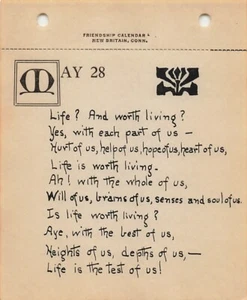 FRIENDSHIP CALENDAR
NEW BRITAIN, CONN.
MAY 28
Life? And worth living?
Yes, with each part of us—
Hurt of us, help of us, hope of us, heart of us,
Life is worth living.
Ah! with the whole of us,
Will of us, brains of us, senses and soul of us.
Is life worth living?
Aye, with the best of us,
Heights of us, depths of us,—
Life is the test of us!